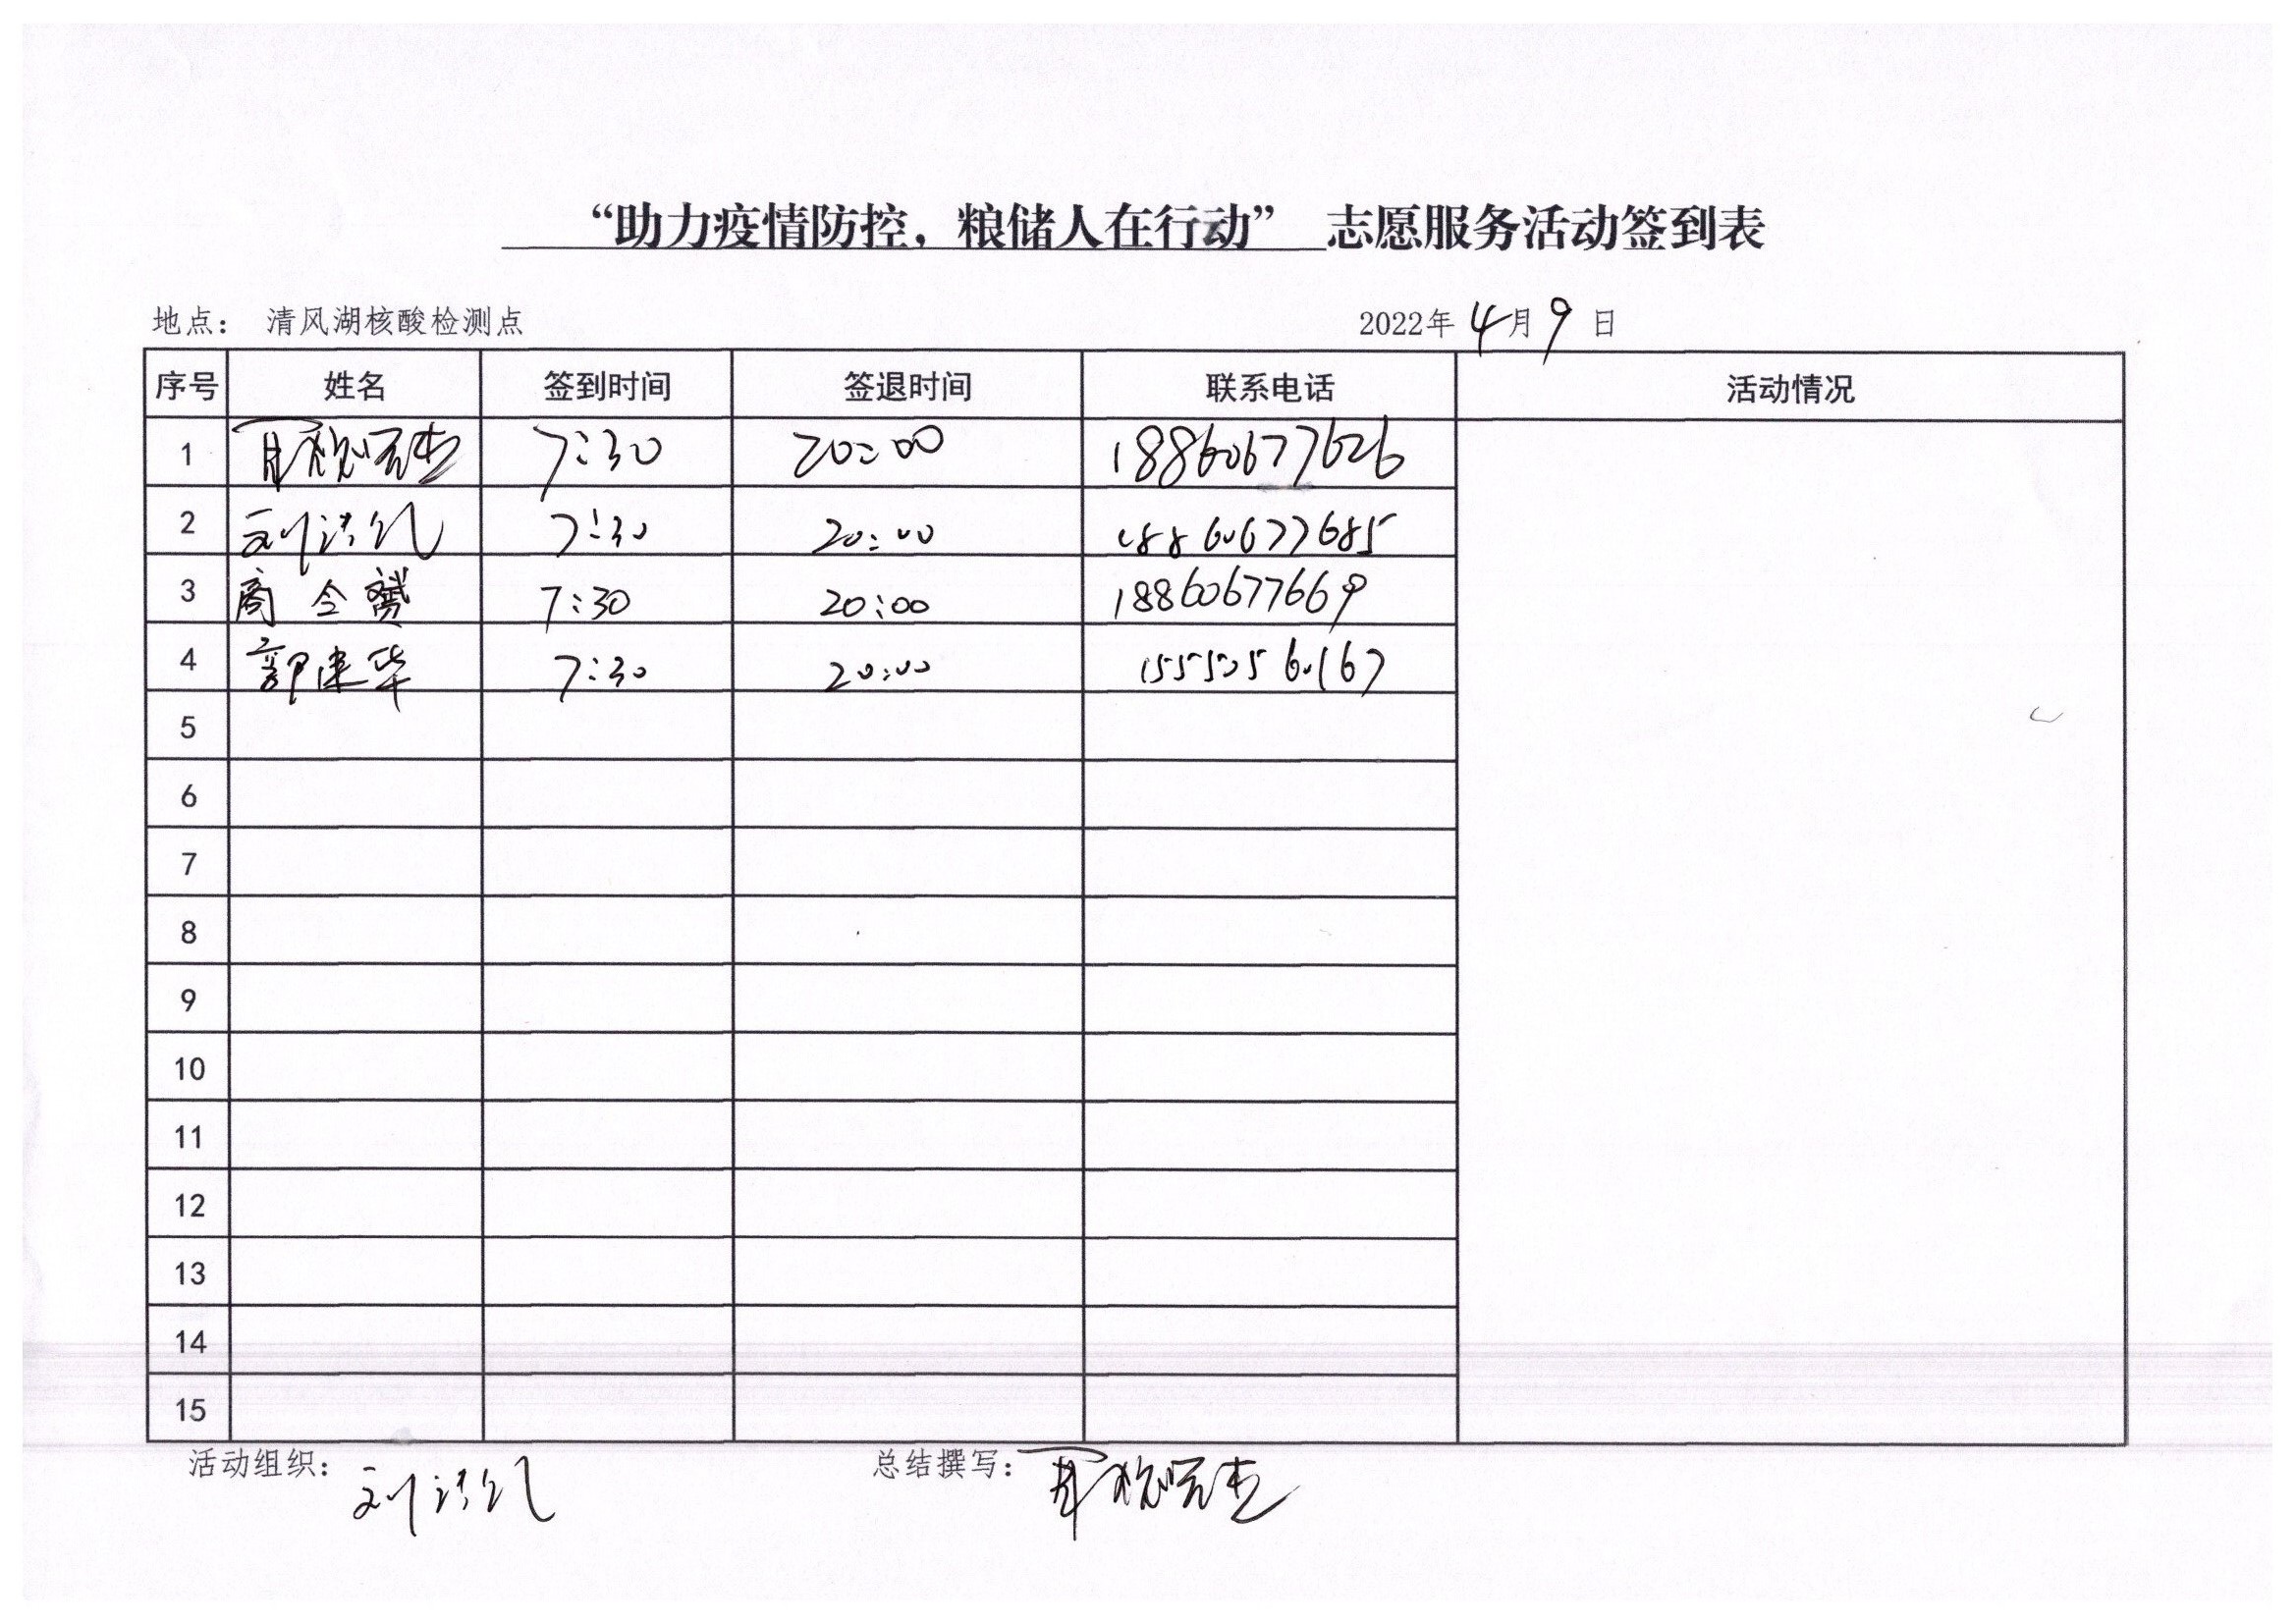 “助力疫情防控，粮储人在行动” 志愿服务活动签到表
地点： 清风湖核酸检测点 2022年4月9日
序号 姓名 签到时间 签退时间 联系电话 活动情况
1 7:30 20:00 18860677626
2 刘洪仪 7:30 20:00 18860677685
3 商全赟 7:30 20:00 18860677669
4 郭建华 7:30 20:00 15550560167
5
6
7
8
9
10
11
12
13
14
15
活动组织： 刘洪仪 总结撰写：